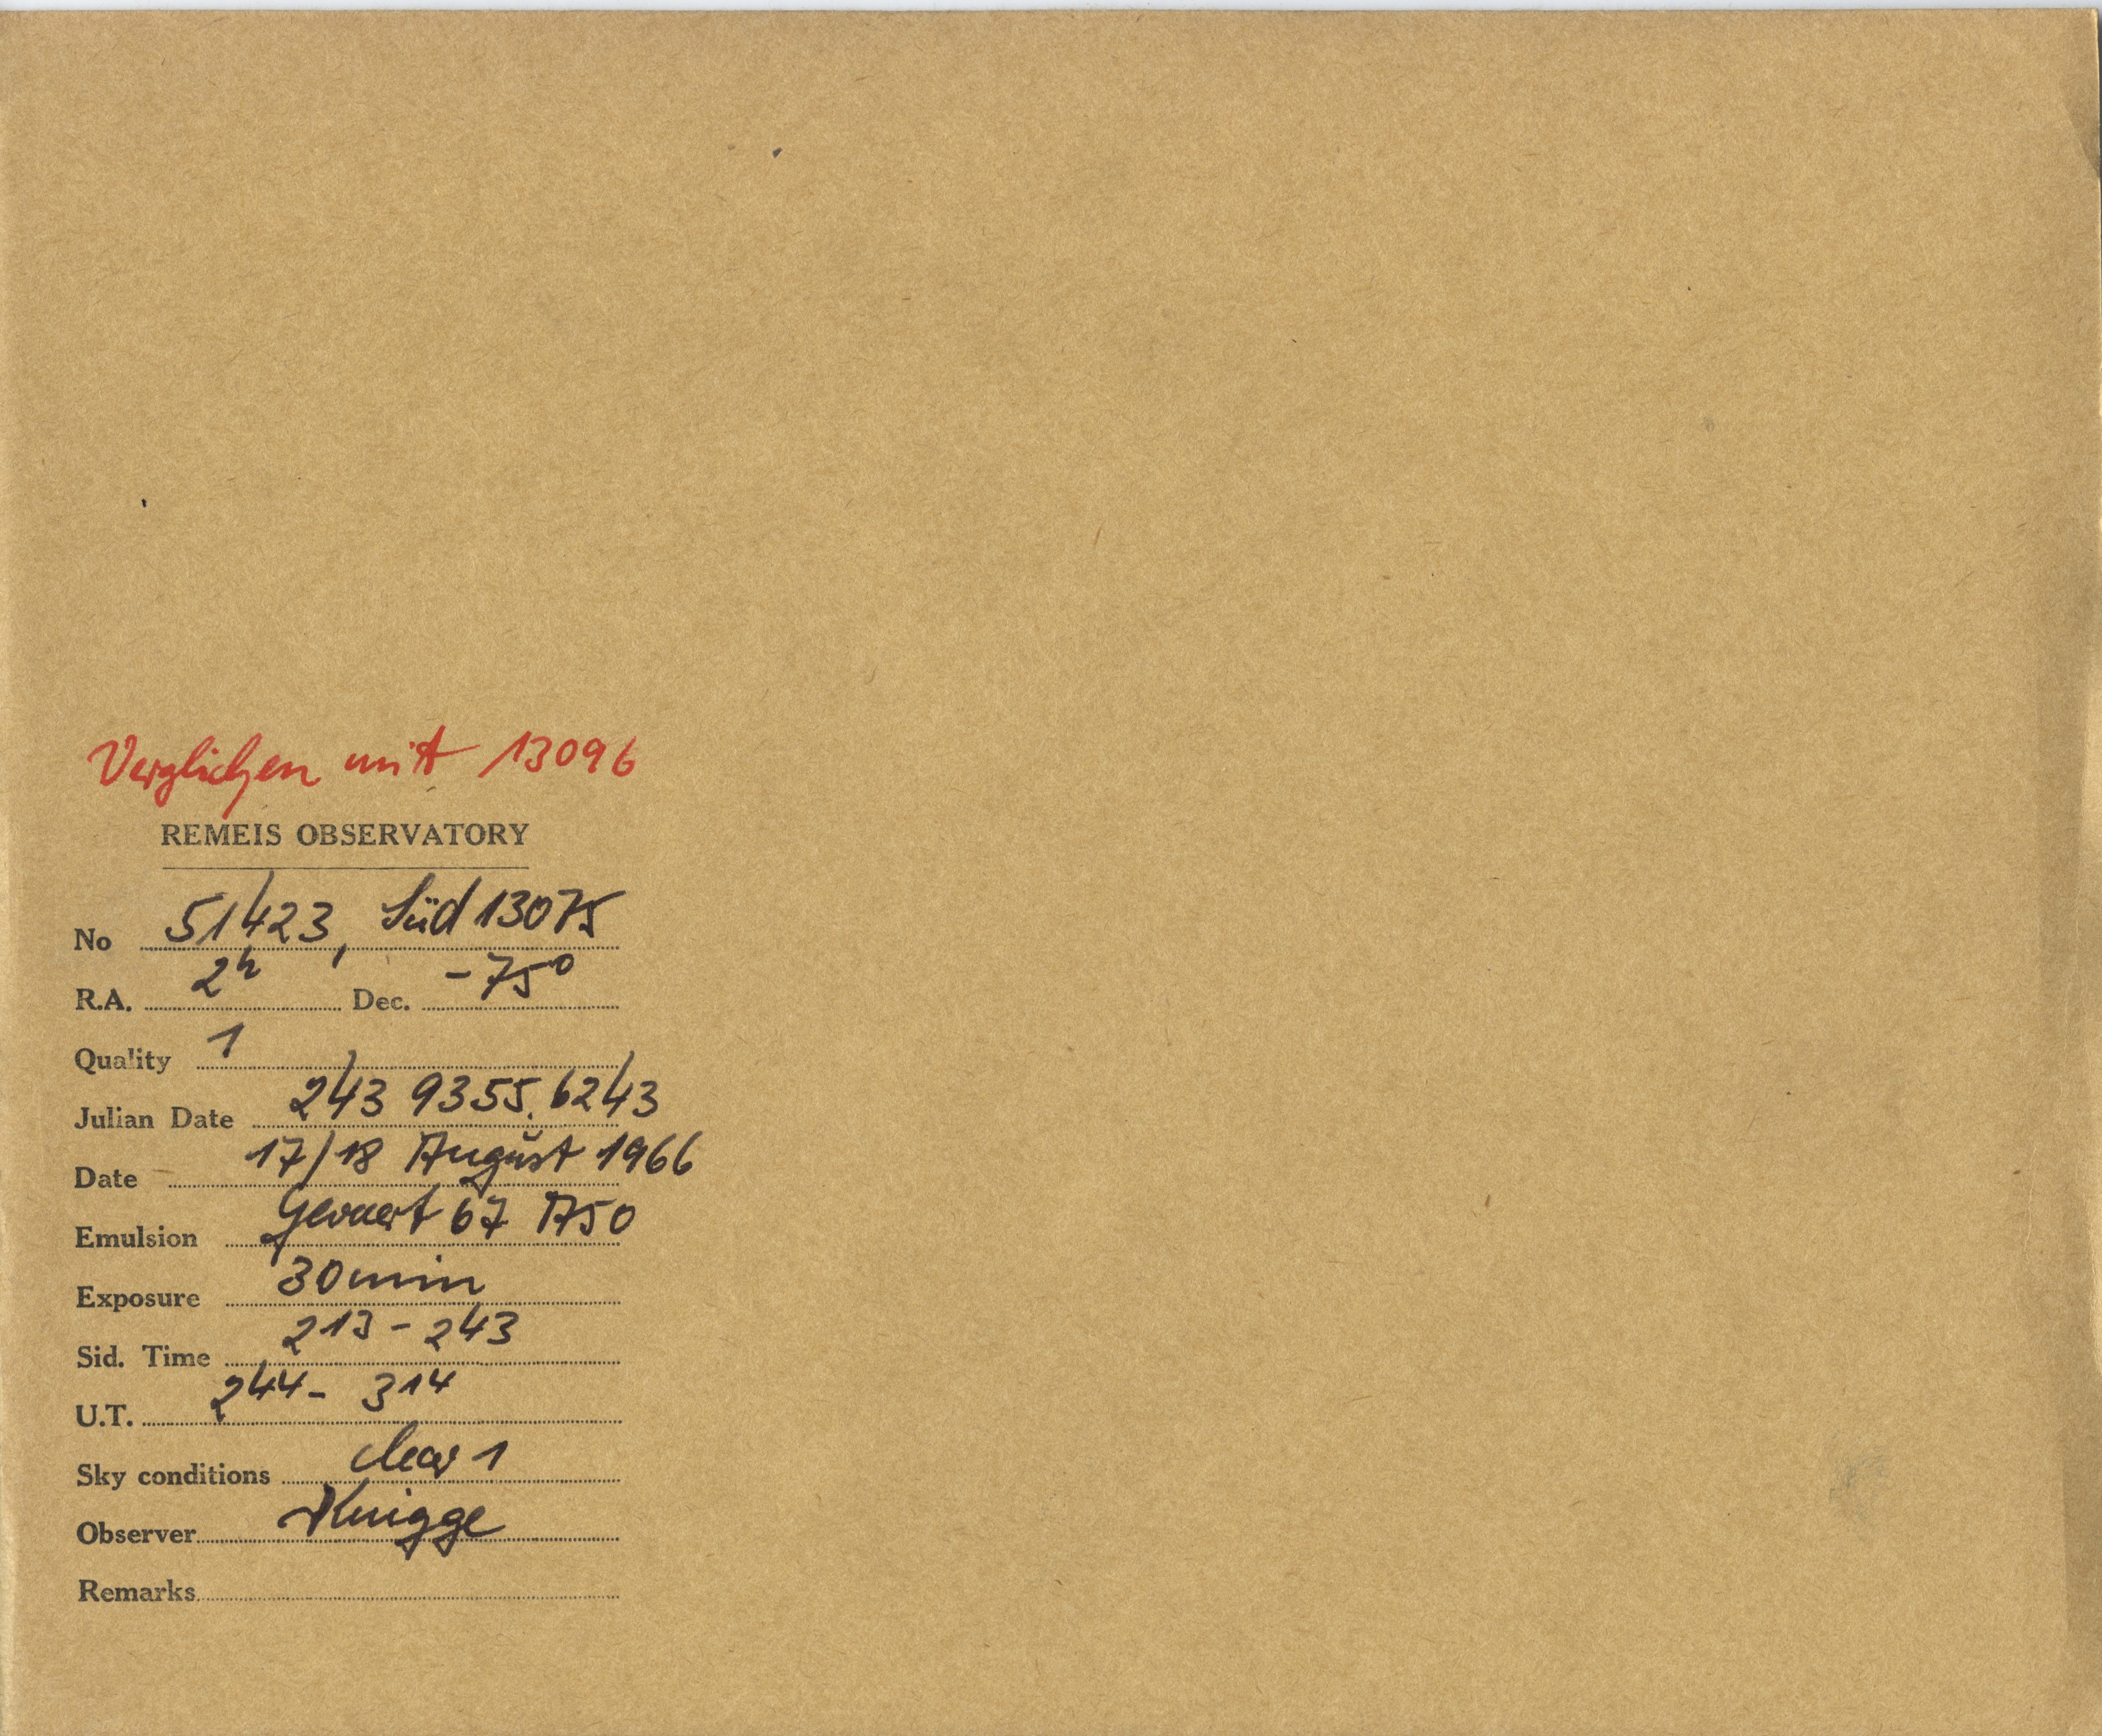 Verglichen mit 13096
REMEIS OBSERVATORY
No 51423, Süd 13075
R.A. 2h Dec. -75°
Quality 1
Julian Date 243 9355.6243
Date 17/18 August 1966
Emulsion Gevaert 67 A50
Exposure 30min
Sid. Time 213 - 243
U.T. 244 - 314
Sky conditions clear 1
Observer Knigge
Remarks